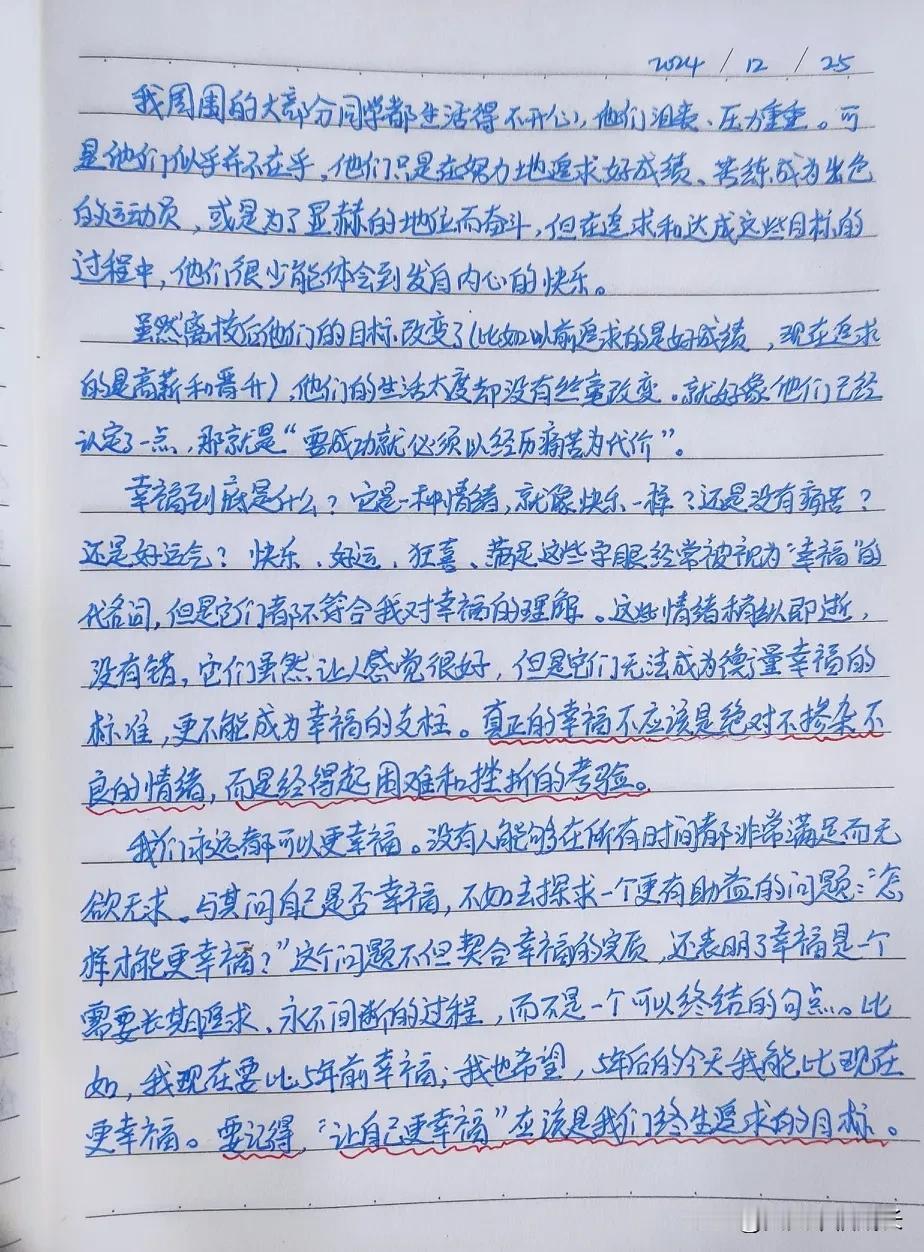 2024 / 12 / 25
我周围的大部分同学都生活得不开心，他们沮丧、压力重重。可
是他们似乎并不在乎，他们只是在努力地追求好成绩、苦练成为出色
的运动员，或是为了显赫的地位而奋斗，但在追求和达成这些目标的
过程中，他们很少能体会到发自内心的快乐。
虽然离校后他们的目标改变了（比如以前追求的是好成绩，现在追求
的是高薪和晋升），他们的生活太度却没有丝毫改变。就好像他们已经
认定了一点，那就是“要成功就必须以经历痛苦为代价”。
幸福到底是什么？它是一种情绪，就像快乐一样？还是没有痛苦？
还是好运气？快乐、好运、狂喜、满足这些字眼经常被视为“幸福”的
代名词，但是它们都不符合我对幸福的理解。这些情绪稍纵即逝，
没有错，它们虽然让人感觉很好，但是它们无法成为衡量幸福的
标准，更不能成为幸福的支柱。真正的幸福不应该是绝对不掺杂不
良的情绪，而是经得起困难和挫折的考验。
我们永远都可以更幸福。没有人能够在所有时间都非常满足而无
欲无求。与其问自己是否幸福，不如去探求一个更有助益的问题：“怎
样才能更幸福？”这个问题不但契合幸福的实质，还表明了幸福是一个
需要长期追求、永不间断的过程，而不是一个可以终结的句点。比
如，我现在要比5年前幸福；我也希望，5年后的今天我能比现在
更幸福。要记得，“让自己更幸福”应该是我们终生追求的的目标。